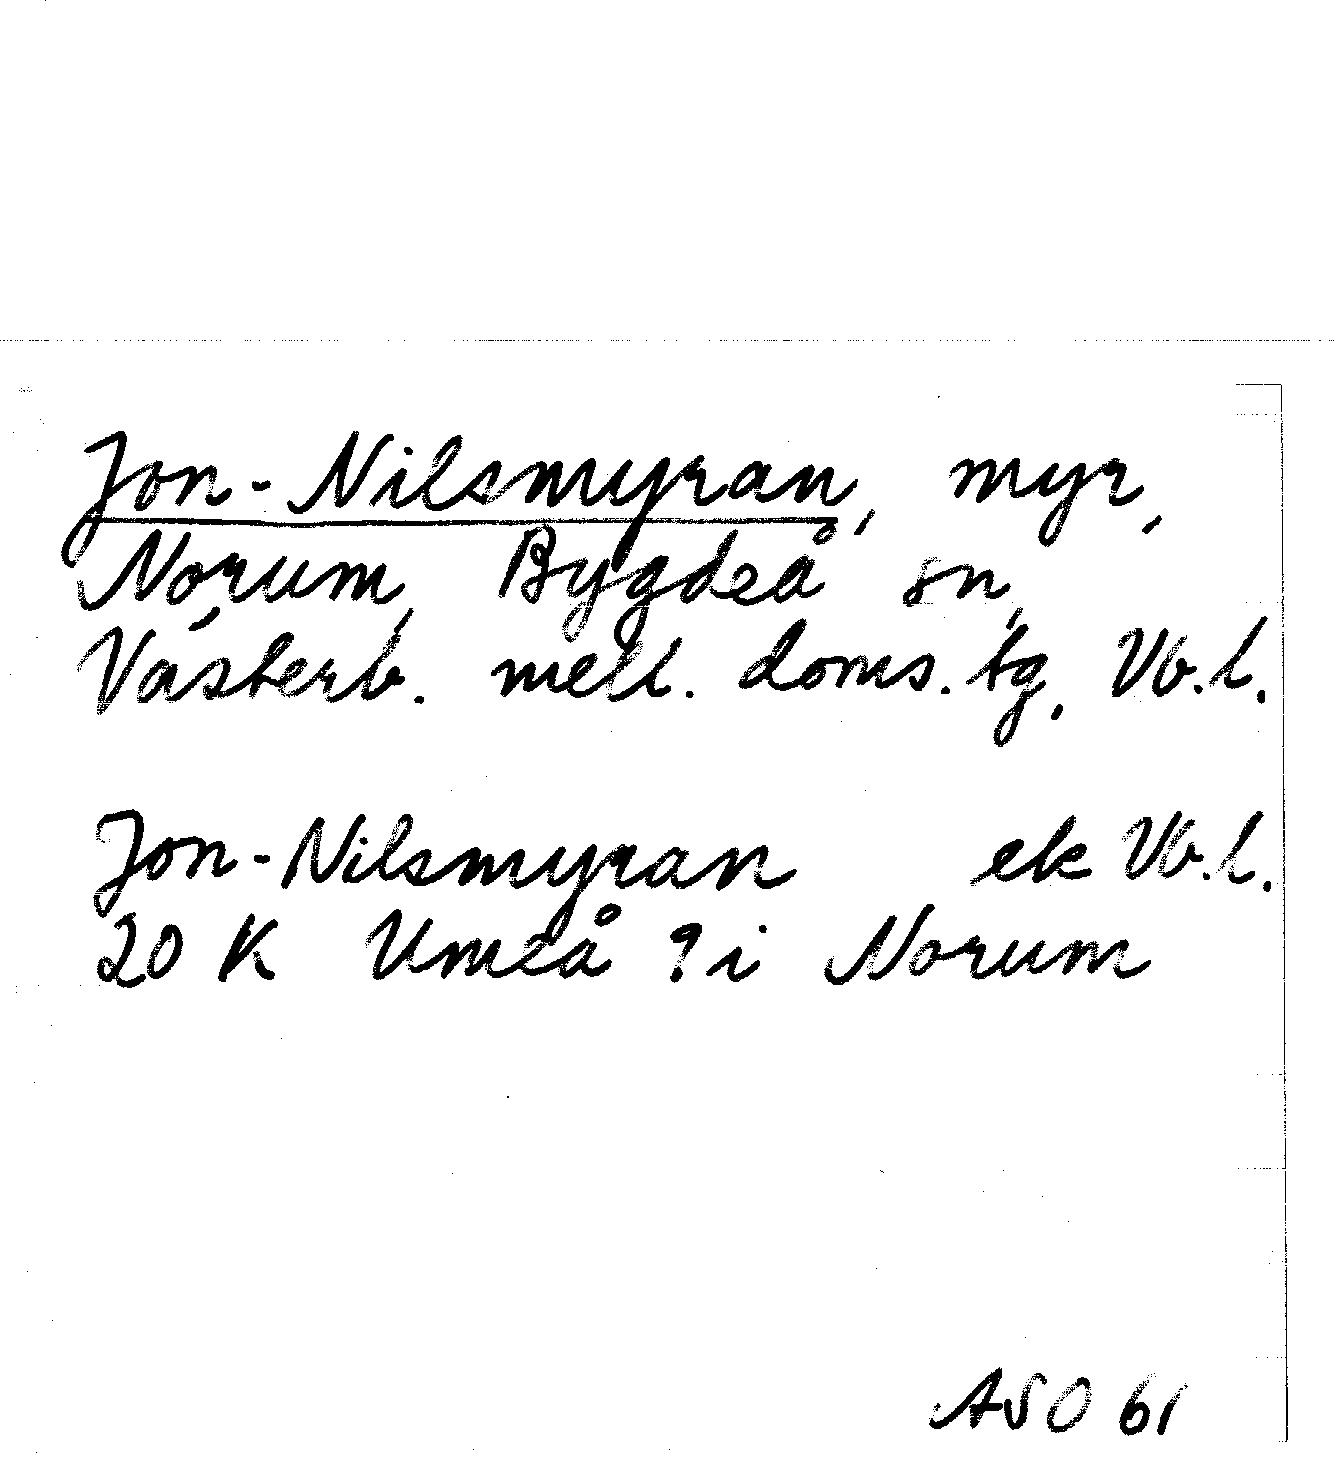 Jon-Nilsmyran, myr,
Norum, Bygdeå sn,
Västerb. mell. doms. tg, Vb.l.
Jon-Nilsmyran ek Vb.l.
20 K Umeå 9 i Norum
ASO 61